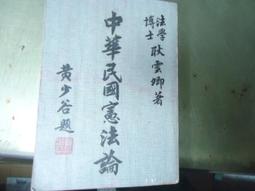 法學
博士 耿雲卿著
中華民國憲法論
黃少谷題